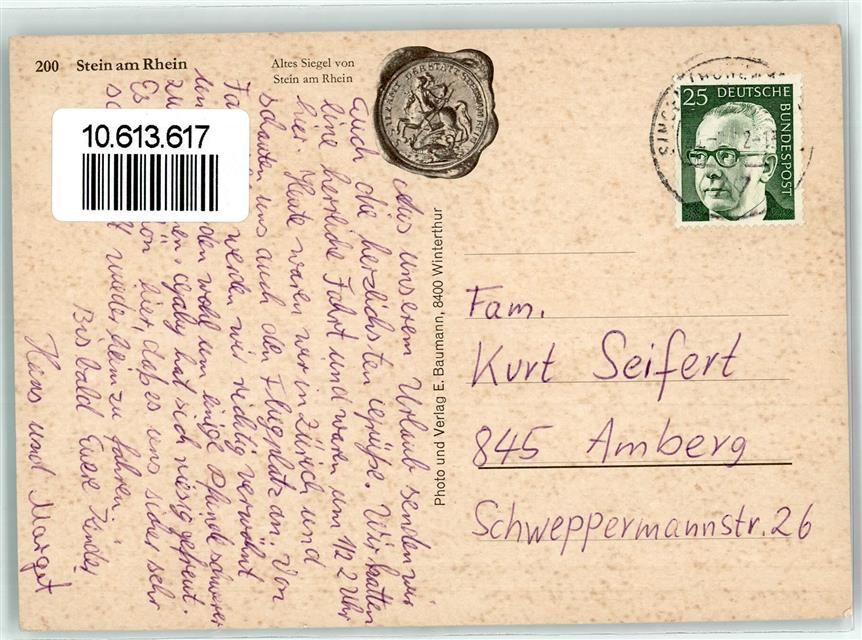 200 Stein am Rhein
Altes Siegel von
Stein am Rhein
10.613.617
25 DEUTSCHE
BUNDESPOST
Aus unserem Urlaub senden wir
Euch die herzlichsten Grüße. Wir hatten
eine herrliche Fahrt und waren um 1/2 2 Uhr
hier. Heute waren wir in Zürich und
schauten uns auch den Flugplatz an. Von
Fa werden wir richtig verwöhnt
und den wohl um einige Pfunde schwerer
zu hat sich riesig gefreut.
Es hier, daß es uns sicher sehr
wieder heim zu fahren.
Bis bald Eure Kinder
Hans und Margit
Photo und Verlag E. Baumann, 8400 Winterthur
Fam.
Kurt Seifert
845 Amberg
Schweppermannstr. 26